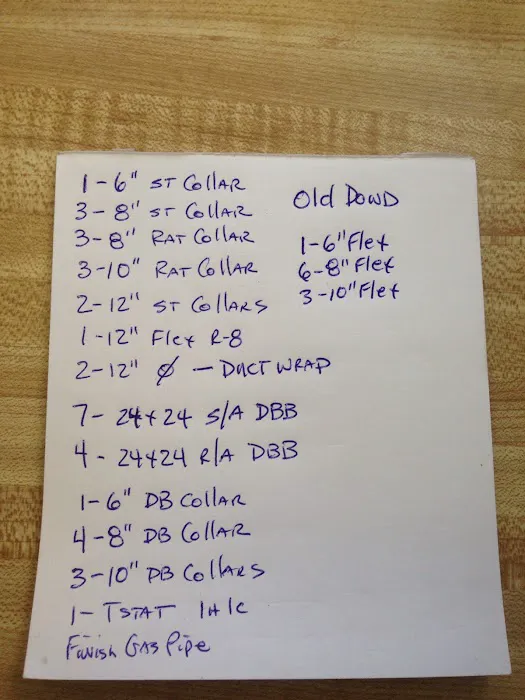 1-6" ST Collar
3-8" ST Collar
3-8" Rat Collar
3-10" Rat Collar
2-12" ST Collars
1-12" Flex R-8
2-12" Ø - Duct Wrap
7- 24x24 S/A DBB
4- 24x24 R/A DBB
1-6" DB Collar
4-8" DB Collar
3-10" DB Collars
1- TSTAT 1H1C
Finish Gas Pipe
Old Dowd
1-6" Flex
6-8" Flex
3-10" Flex